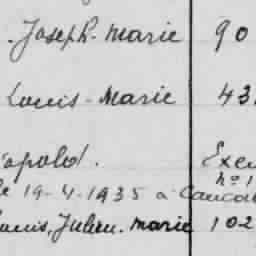 Joseph-Marie 90
Louis-Marie 43
opold. Exem
19-4-1935 à Cancal
Louis, Julien. Marie 102